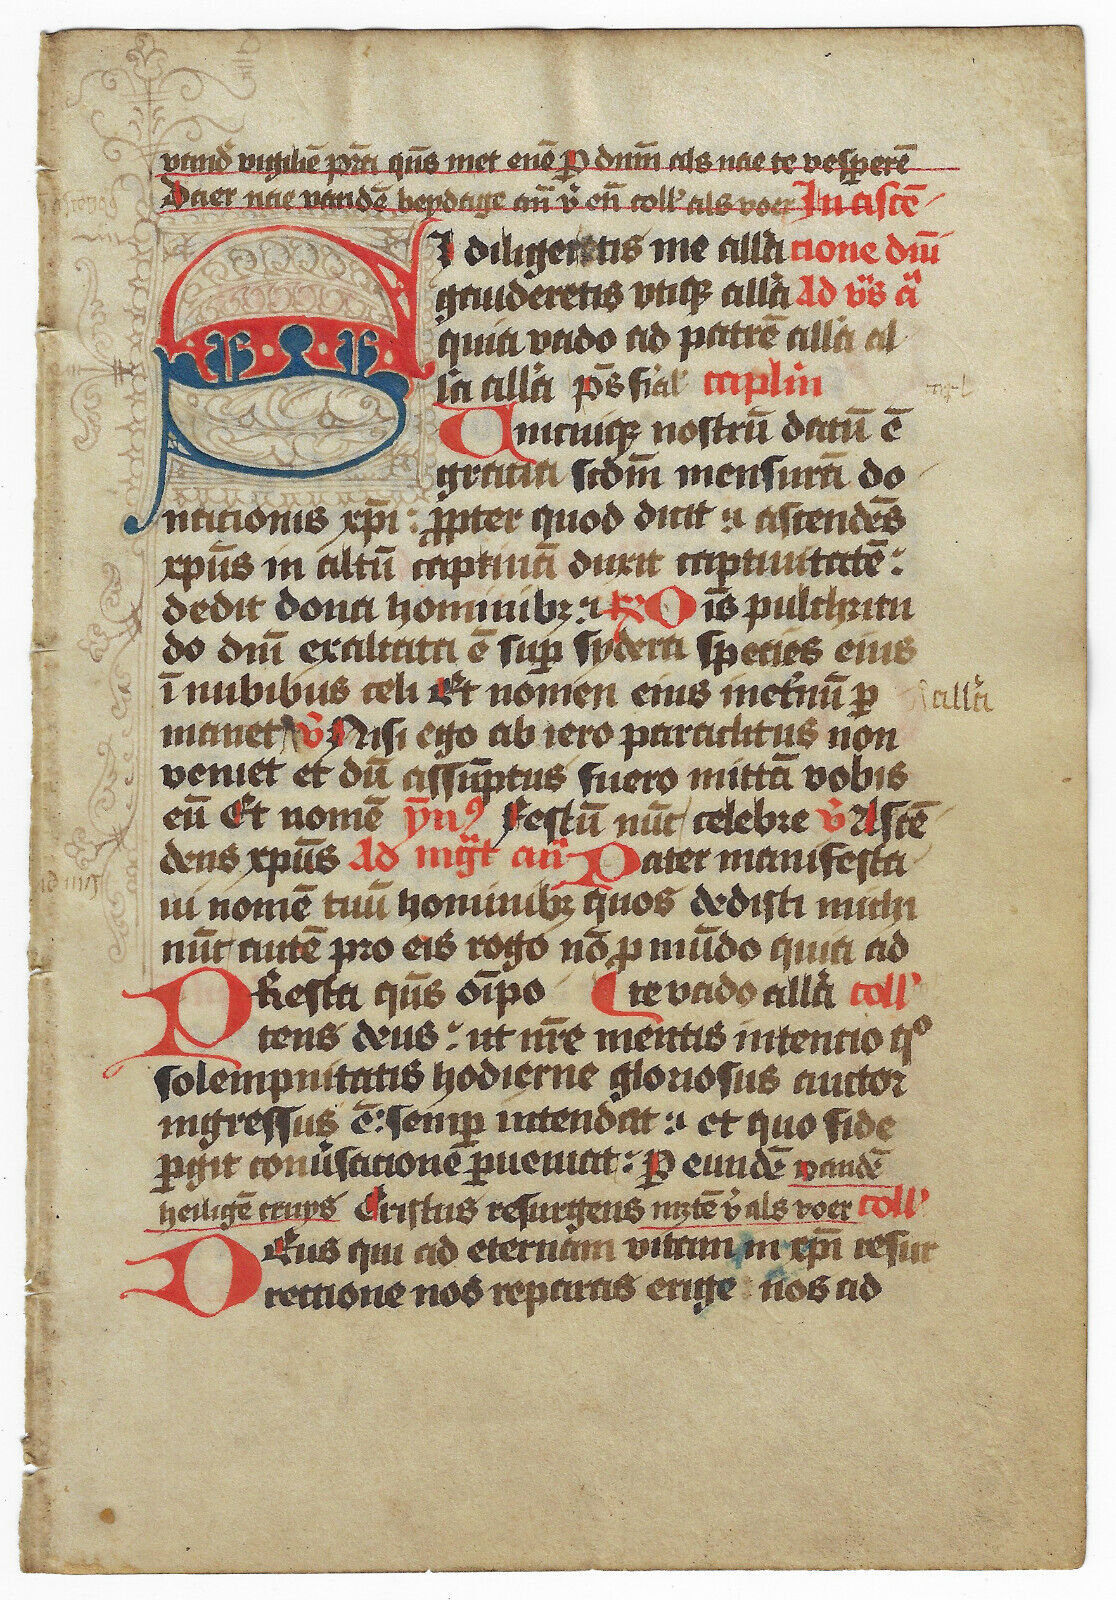 vand̄ vigiliē pr̄a qūs met enē P dn̄m als nae te vesperē
Daer nae vandē heydage an̄ v̄ en̄ coll' als voer In ascē
SI diligeretis me all'a cione dn̄i
gauderetis vtiqꝫ all'a Ad v̄s a̅
quia vado ad patrē all'a al
l'a all'a p̄s fial' caplm
Unicuiqꝫ nostrū datū ē
gratia scdm̄ mensurā do
nacionis xp̄i : ꝓpter quod dicit : ascendēs
xpūs in altū captiuā duxit captiuitatē :
dedit dona hominibꝫ : R Oīs pulchritu
do dn̄i exaltata ē suꝑ sydera species eius
ī nubibus celi Et nomen eius inet'nū ꝑ
manet v̄ Nisi ego ab iero paraclitus non
veniet et dū assūptus fuero mittā vobis
eū Et nomē ȳnꝰ Festū nūc celebre v̄ Ascē
dens xpūs Ad mḡt an̄ Pater manifesta
ui nomē tuū hominibꝫ quos dedisti michi
nūc autē pro eis rogo nō ꝓ mūdo quia ad
PResta qūs oīpo te vado all'a coll'
tens deus : ut nr̄e mentis intencio qº
solempnitatis hodierne gloriosus auctor
ingressus ē : semꝑ intendat : et quo fide
ꝑgit conūsacionē ꝑueniat : P eundē vandē
heiligē cruys Cristus resurgens mztē v̄ als voer coll'
DEus qui ad eternam vitam in xp̄i resur
rectione nos reparas erige nos ad
all'a